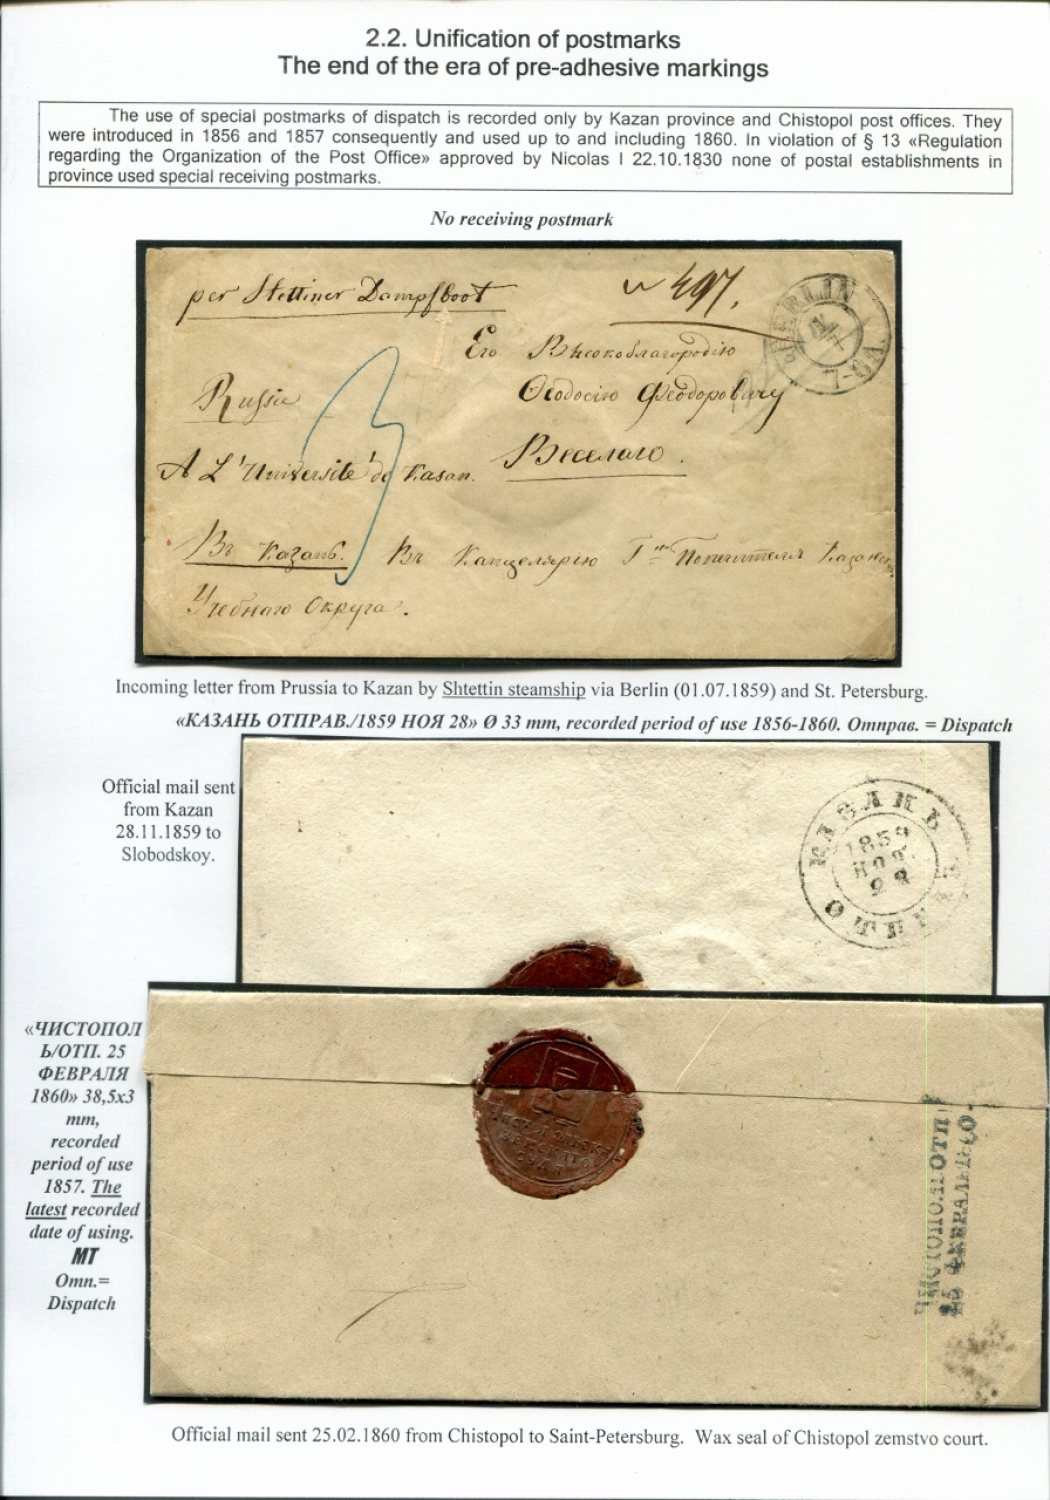 2.2. Unification of postmarks
The end of the era of pre-adhesive markings
The use of special postmarks of dispatch is recorded only by Kazan province and Chistopol post offices. They
were introduced in 1856 and 1857 consequently and used up to and including 1860. In violation of § 13 «Regulation
regarding the Organization of the Post Office» approved by Nicolas I 22.10.1830 none of postal establishments in
province used special receiving postmarks.
No receiving postmark
per Stettiner Dampfboot
497.
BERLIN
7-8A.
Его Высокоблагородію
Ѳеодосію Ѳеодоровичу
Веселаго.
Russie
A L'Université de Kasan.
3
Въ Казань. Въ Канцелярію Гна Попечителя Казанск.
Учебнаго Округа.
Incoming letter from Prussia to Kazan by Shtettin steamship via Berlin (01.07.1859) and St. Petersburg.
«КАЗАНЬ ОТПРАВ./1859 НОЯ 28» Ø 33 mm, recorded period of use 1856-1860. Отправ. = Dispatch
Official mail sent
from Kazan
28.11.1859 to
Slobodskoy.
КАЗАНЬ
1859
НОЯ.
28
«ЧИСТОПОЛ
Ь/ОТП. 25
ФЕВРАЛЯ
1860» 38,5x3
mm,
recorded
period of use
1857. The
latest recorded
date of using.
МТ
Отп.=
Dispatch
ЧИСТОПО.Ь ОТП
25 ФЕВРАЛЬ 60.
Official mail sent 25.02.1860 from Chistopol to Saint-Petersburg. Wax seal of Chistopol zemstvo court.